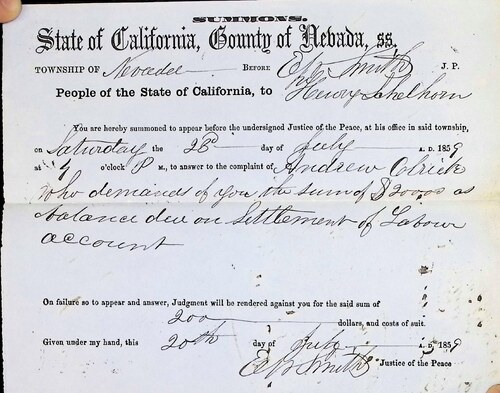 SUMMONS.
State of California, County of Nevada, ss.
TOWNSHIP OF Nevada BEFORE E W Smith J. P.
People of the State of California, to Henry Schelhorn
You are hereby summoned to appear before the undersigned Justice of the Peace, at his office in said township,
on Saturday the 23d day of July A. D. 1859
at o'clock P M., to answer to the complaint of Andrew
who demands of you the sum of $200.00 as
balance due on Settlement of Labour
account
On failure so to appear and answer, Judgment will be rendered against you for the said sum of
200 dollars, and costs of suit.
Given under my hand, this 20th day of July A. D. 1859
E W Smith Justice of the Peace